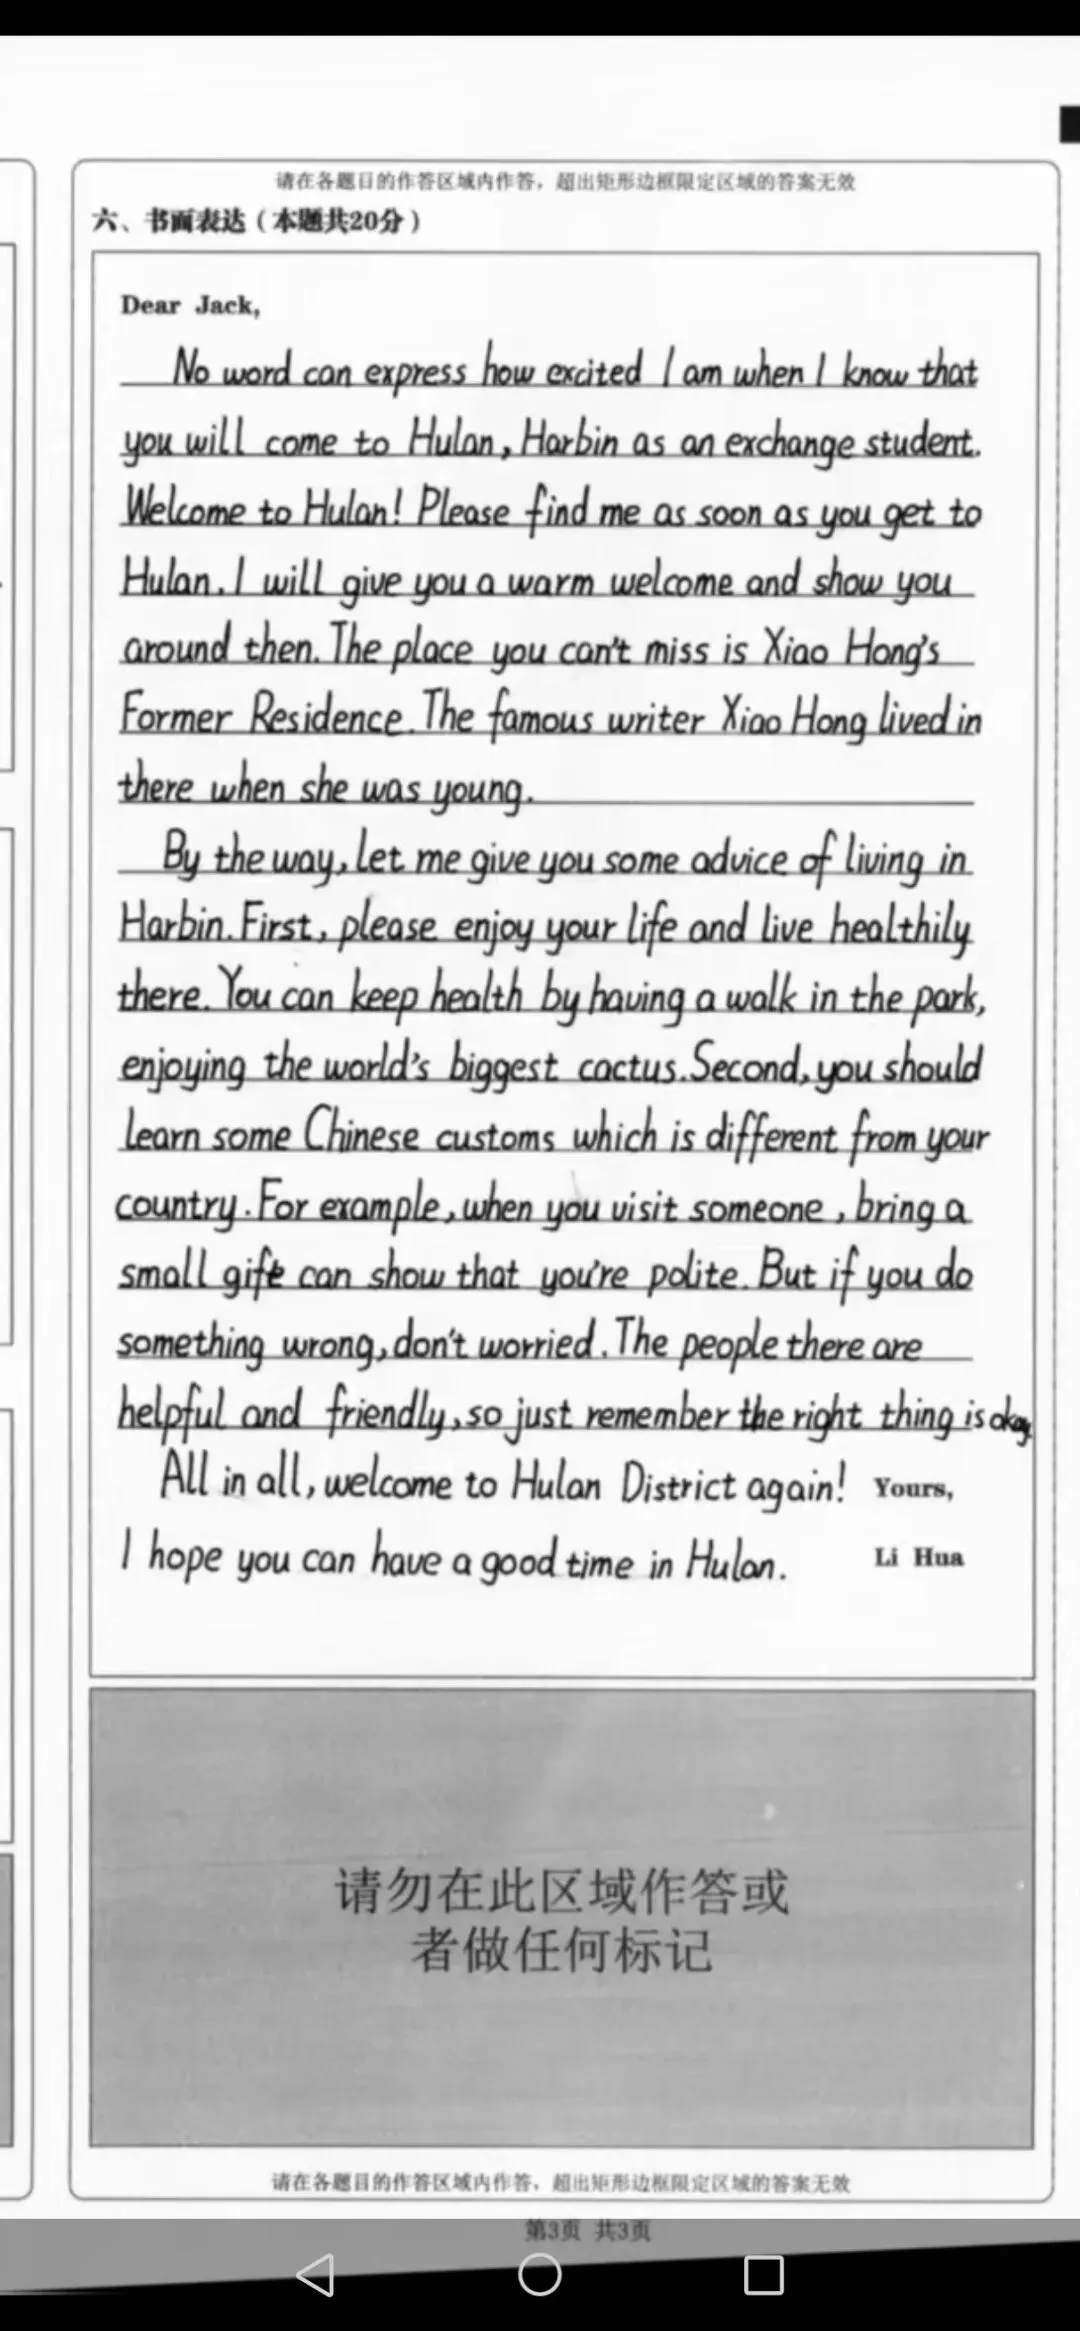 请在各题目的作答区域内作答，超出矩形边框限定区域的答案无效
六、书面表达（本题共20分）
Dear Jack,
No word can express how excited I am when I know that
you will come to Hulan, Harbin as an exchange student.
Welcome to Hulan! Please find me as soon as you get to
Hulan. I will give you a warm welcome and show you
around then. The place you can't miss is Xiao Hong's
Former Residence. The famous writer Xiao Hong lived in
there when she was young.
By the way, let me give you some advice of living in
Harbin. First, please enjoy your life and live healthily
there. You can keep health by having a walk in the park,
enjoying the world's biggest cactus. Second, you should
learn some Chinese customs which is different from your
country. For example, when you visit someone, bring a
small gift can show that you're polite. But if you do
something wrong, don't worried. The people there are
helpful and friendly, so just remember the right thing is okay.
All in all, welcome to Hulan District again! Yours,
I hope you can have a good time in Hulan. Li Hua
请勿在此区域作答或
者做任何标记
请在各题目的作答区域内作答，超出矩形边框限定区域的答案无效
第3页 共3页